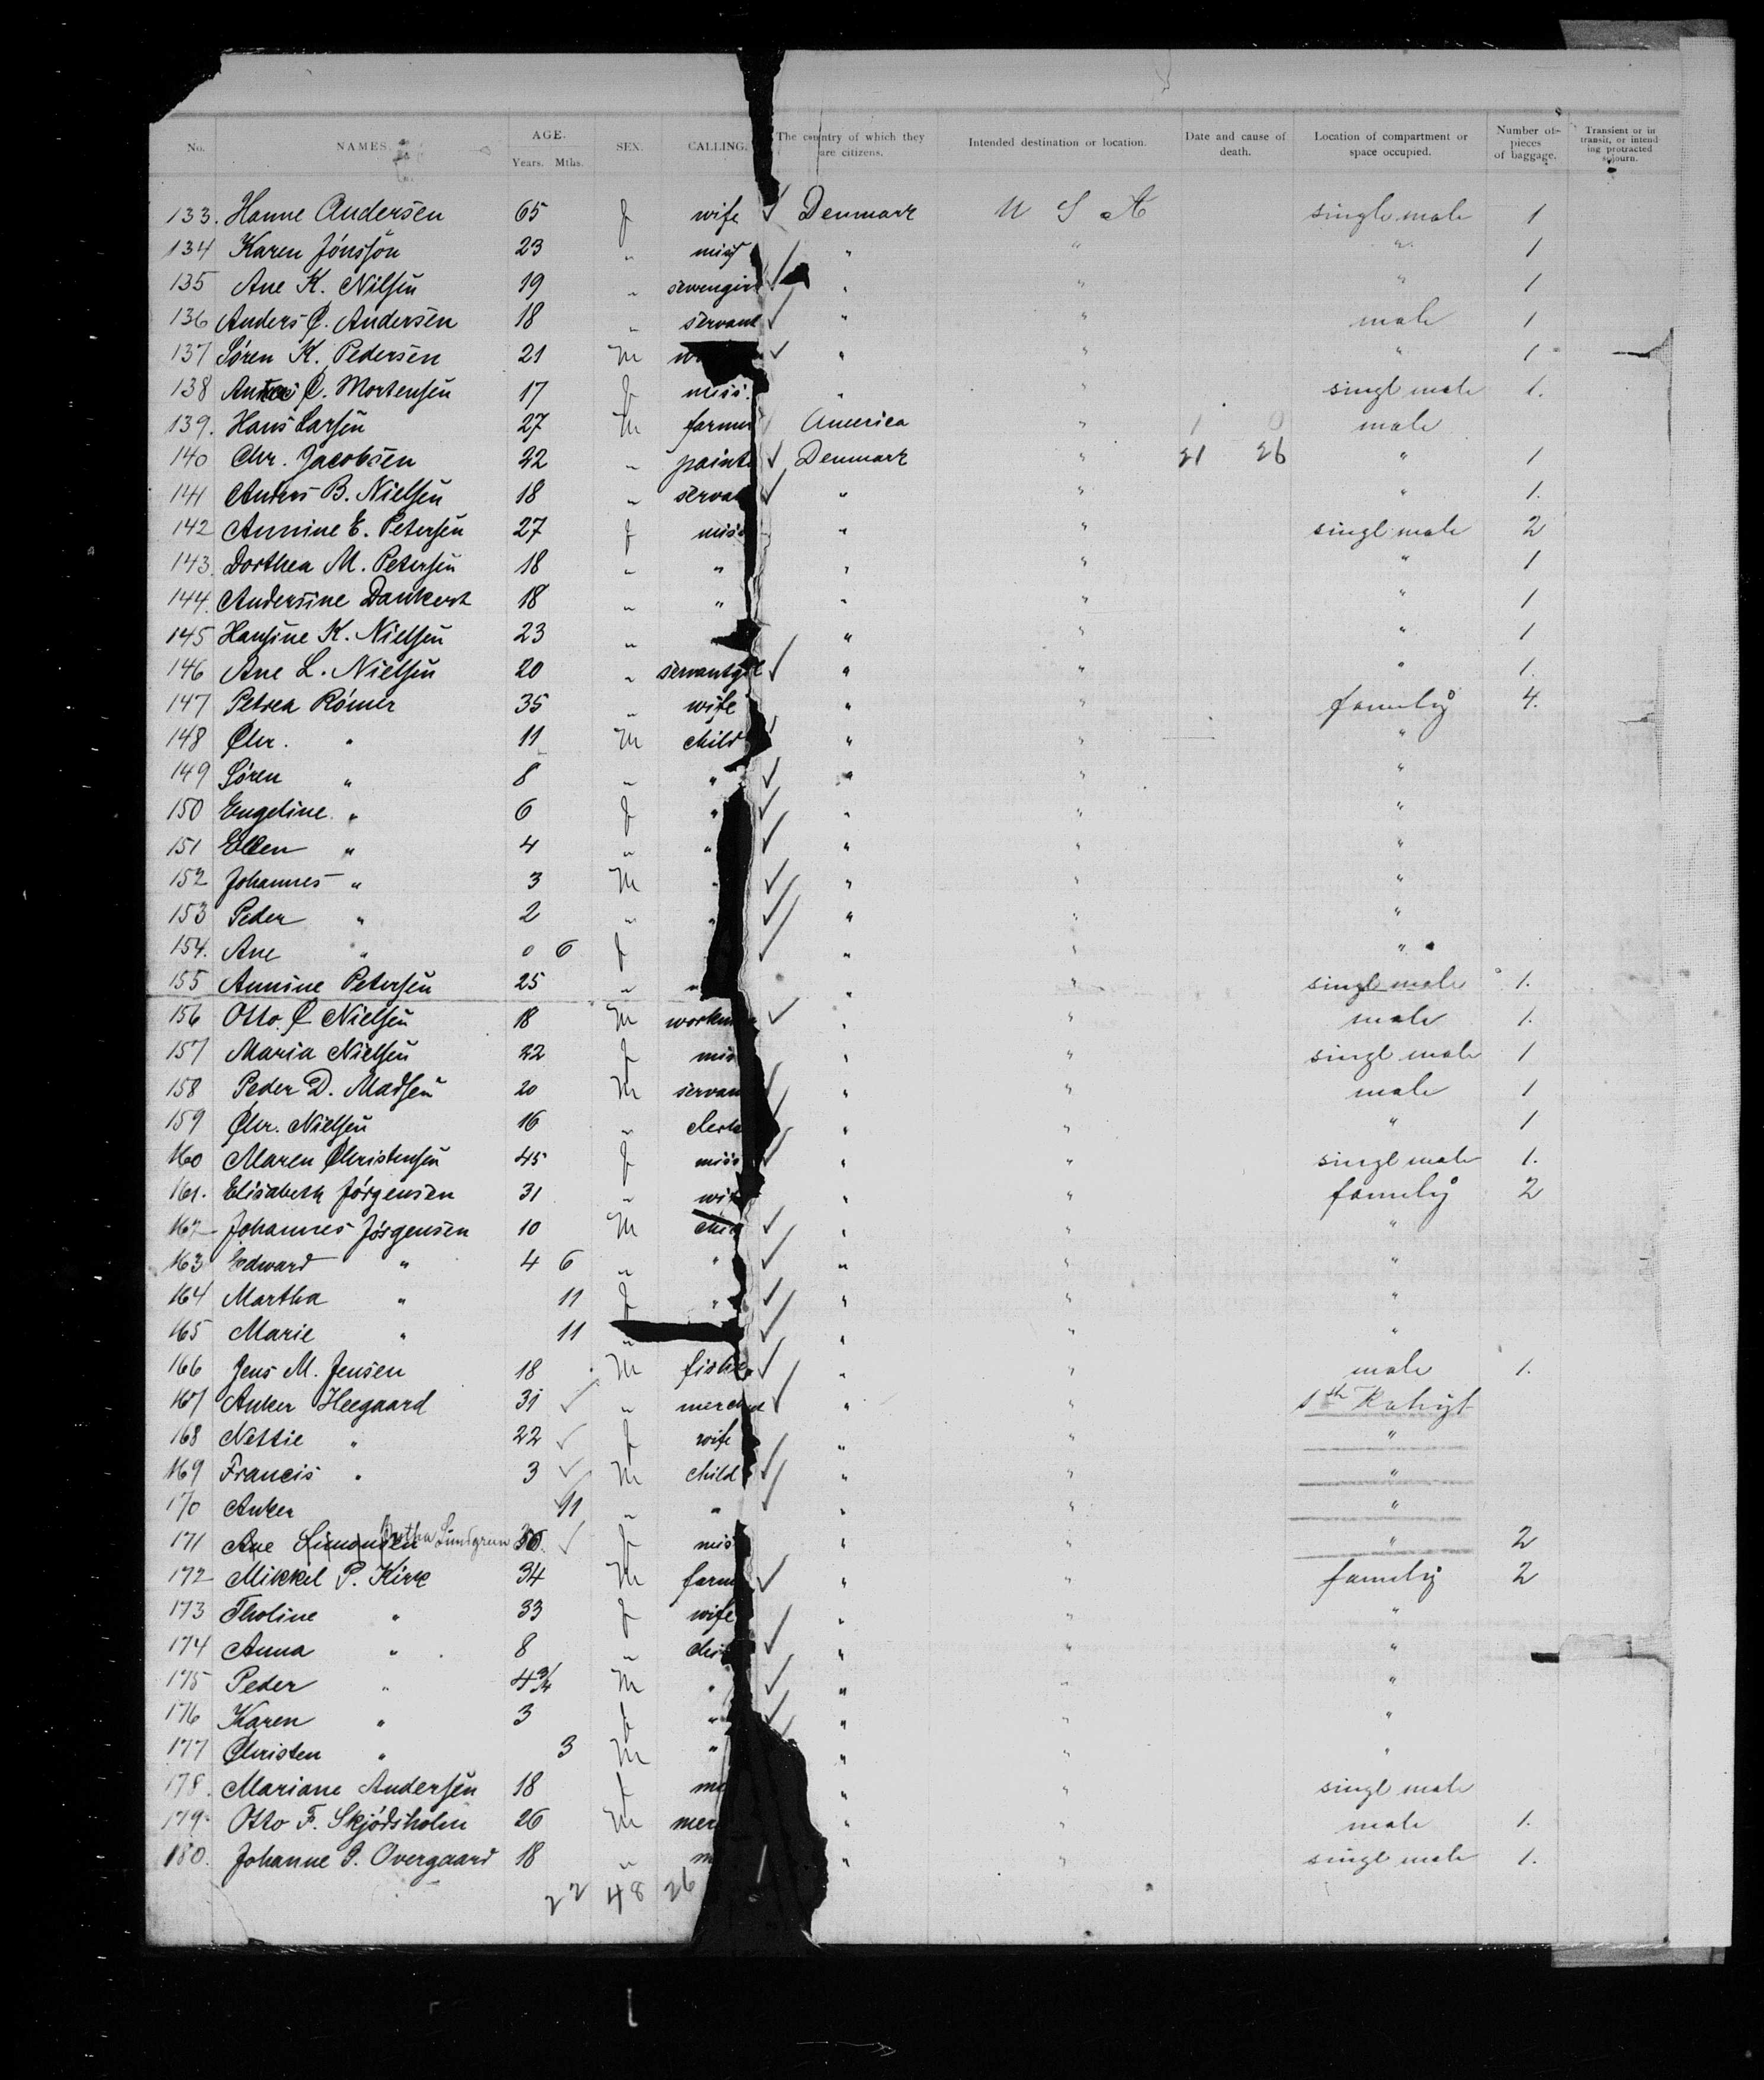 No. NAMES. AGE. Years. Mths. SEX. CALLING. The country of which they are citizens. Intended destination or location. Date and cause of death. Location of compartment or space occupied. Number of pieces of baggage. Transient or in transit, or intending protracted sojourn.
133. Hanne Andersen 65 f wife ✓ Denmark U S A single male 1
134 Karen Jónssón 23 " miss " " " 1
135 Ane K. Nilsen 19 " ✓ " " " 1
136 Anders C. Andersen 18 " servant ✓ " " male 1
137 Sören K. Pedersen 21 m ✓ " " " 1
138 C. Mortensen 17 f miss. " " singl male 1.
139. Hans Larsen 27 m farmer America " 1 0 male
140 Chr. Jacobsen 22 " painte ✓ Denmark " 21 26 " 1
141 Anders B. Nielsen 18 " serva ✓ " " " 1.
142 Annine E. Petersen 27 f miss " " singl male 2
143. Dorthea M. Petersen 18 " " " " " 1
144. Andersine Dankert 18 " " " " " 1
145 Hansine K. Nielsen 23 " " " " 1
146 Ane L. Nielsen 20 " servantg ✓ " " " 1.
147 Petrea Römer 35 " wife " " family 4.
148 Chr. " 11 m child " " "
149 Sören " 8 " " ✓ " " "
150 Engeline " 6 f " ✓ " " "
151 Ellen " 4 " " ✓ " " "
152 Johannes " 3 m " ✓ " " "
153 Peder " 2 " " ✓ " " "
154. Ane " 0 6 f ✓ " " "
155 Annine Petersen 25 " " " " singl male 1.
156 Otto C Nielsen 18 m workm ✓ " " male 1.
157 Maria Nielsen 22 f mis " " singl male 1
158 Peder D. Madsen 20 m servan ✓ " " male 1
159 Chr. Nielsen 16 " clerk " " " 1
160 Maren Christensen 45 f miss ✓ " " singl male 1.
161. Elisabeth Jörgensen 31 " wif " " family 2
162 Johannes Jörgensen 10 m chil ✓ " " "
163 Edward " 4 6 " " ✓ " " "
164 Martha " 11 f " ✓ " " "
165 Marie " 11 " ✓ " " "
166 Jens M. Jensen 18 m fisher ✓ " " male 1.
167 Anker Heegaard 31 ✓ " merch ✓ " " 1th
168 Nettie " 22 ✓ f wife " " "
169 Francis " 3 ✓ m child ✓ " " "
170 Anker 11 " " ✓ " " "
171 Ane Simonsen Lundgreen ✓ f mis " " " 2
172 Mikkel P. Kirk 34 m farm ✓ " " family 2
173 Tholine " 33 f wife " " "
174 Anna " 8 " chil ✓ " " "
175 Peder " 4 3/4 m " ✓ " " "
176 Karen " 3 f " ✓ " " "
177 Christen " 3 m " " " "
178. Mariane Andersen 18 f m " " singl male
179. Otto F. Skjödsholm 26 m mer " " male 1.
180. Johanne J. Overgaard 18 " m " " singl male 1.
22 48 26